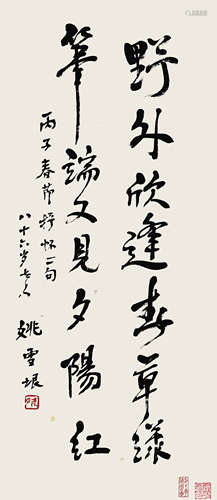 野外欣逢春草绿
筆端又見夕陽紅
丙子春節抒怀二句
八十六岁老人
姚雪垠